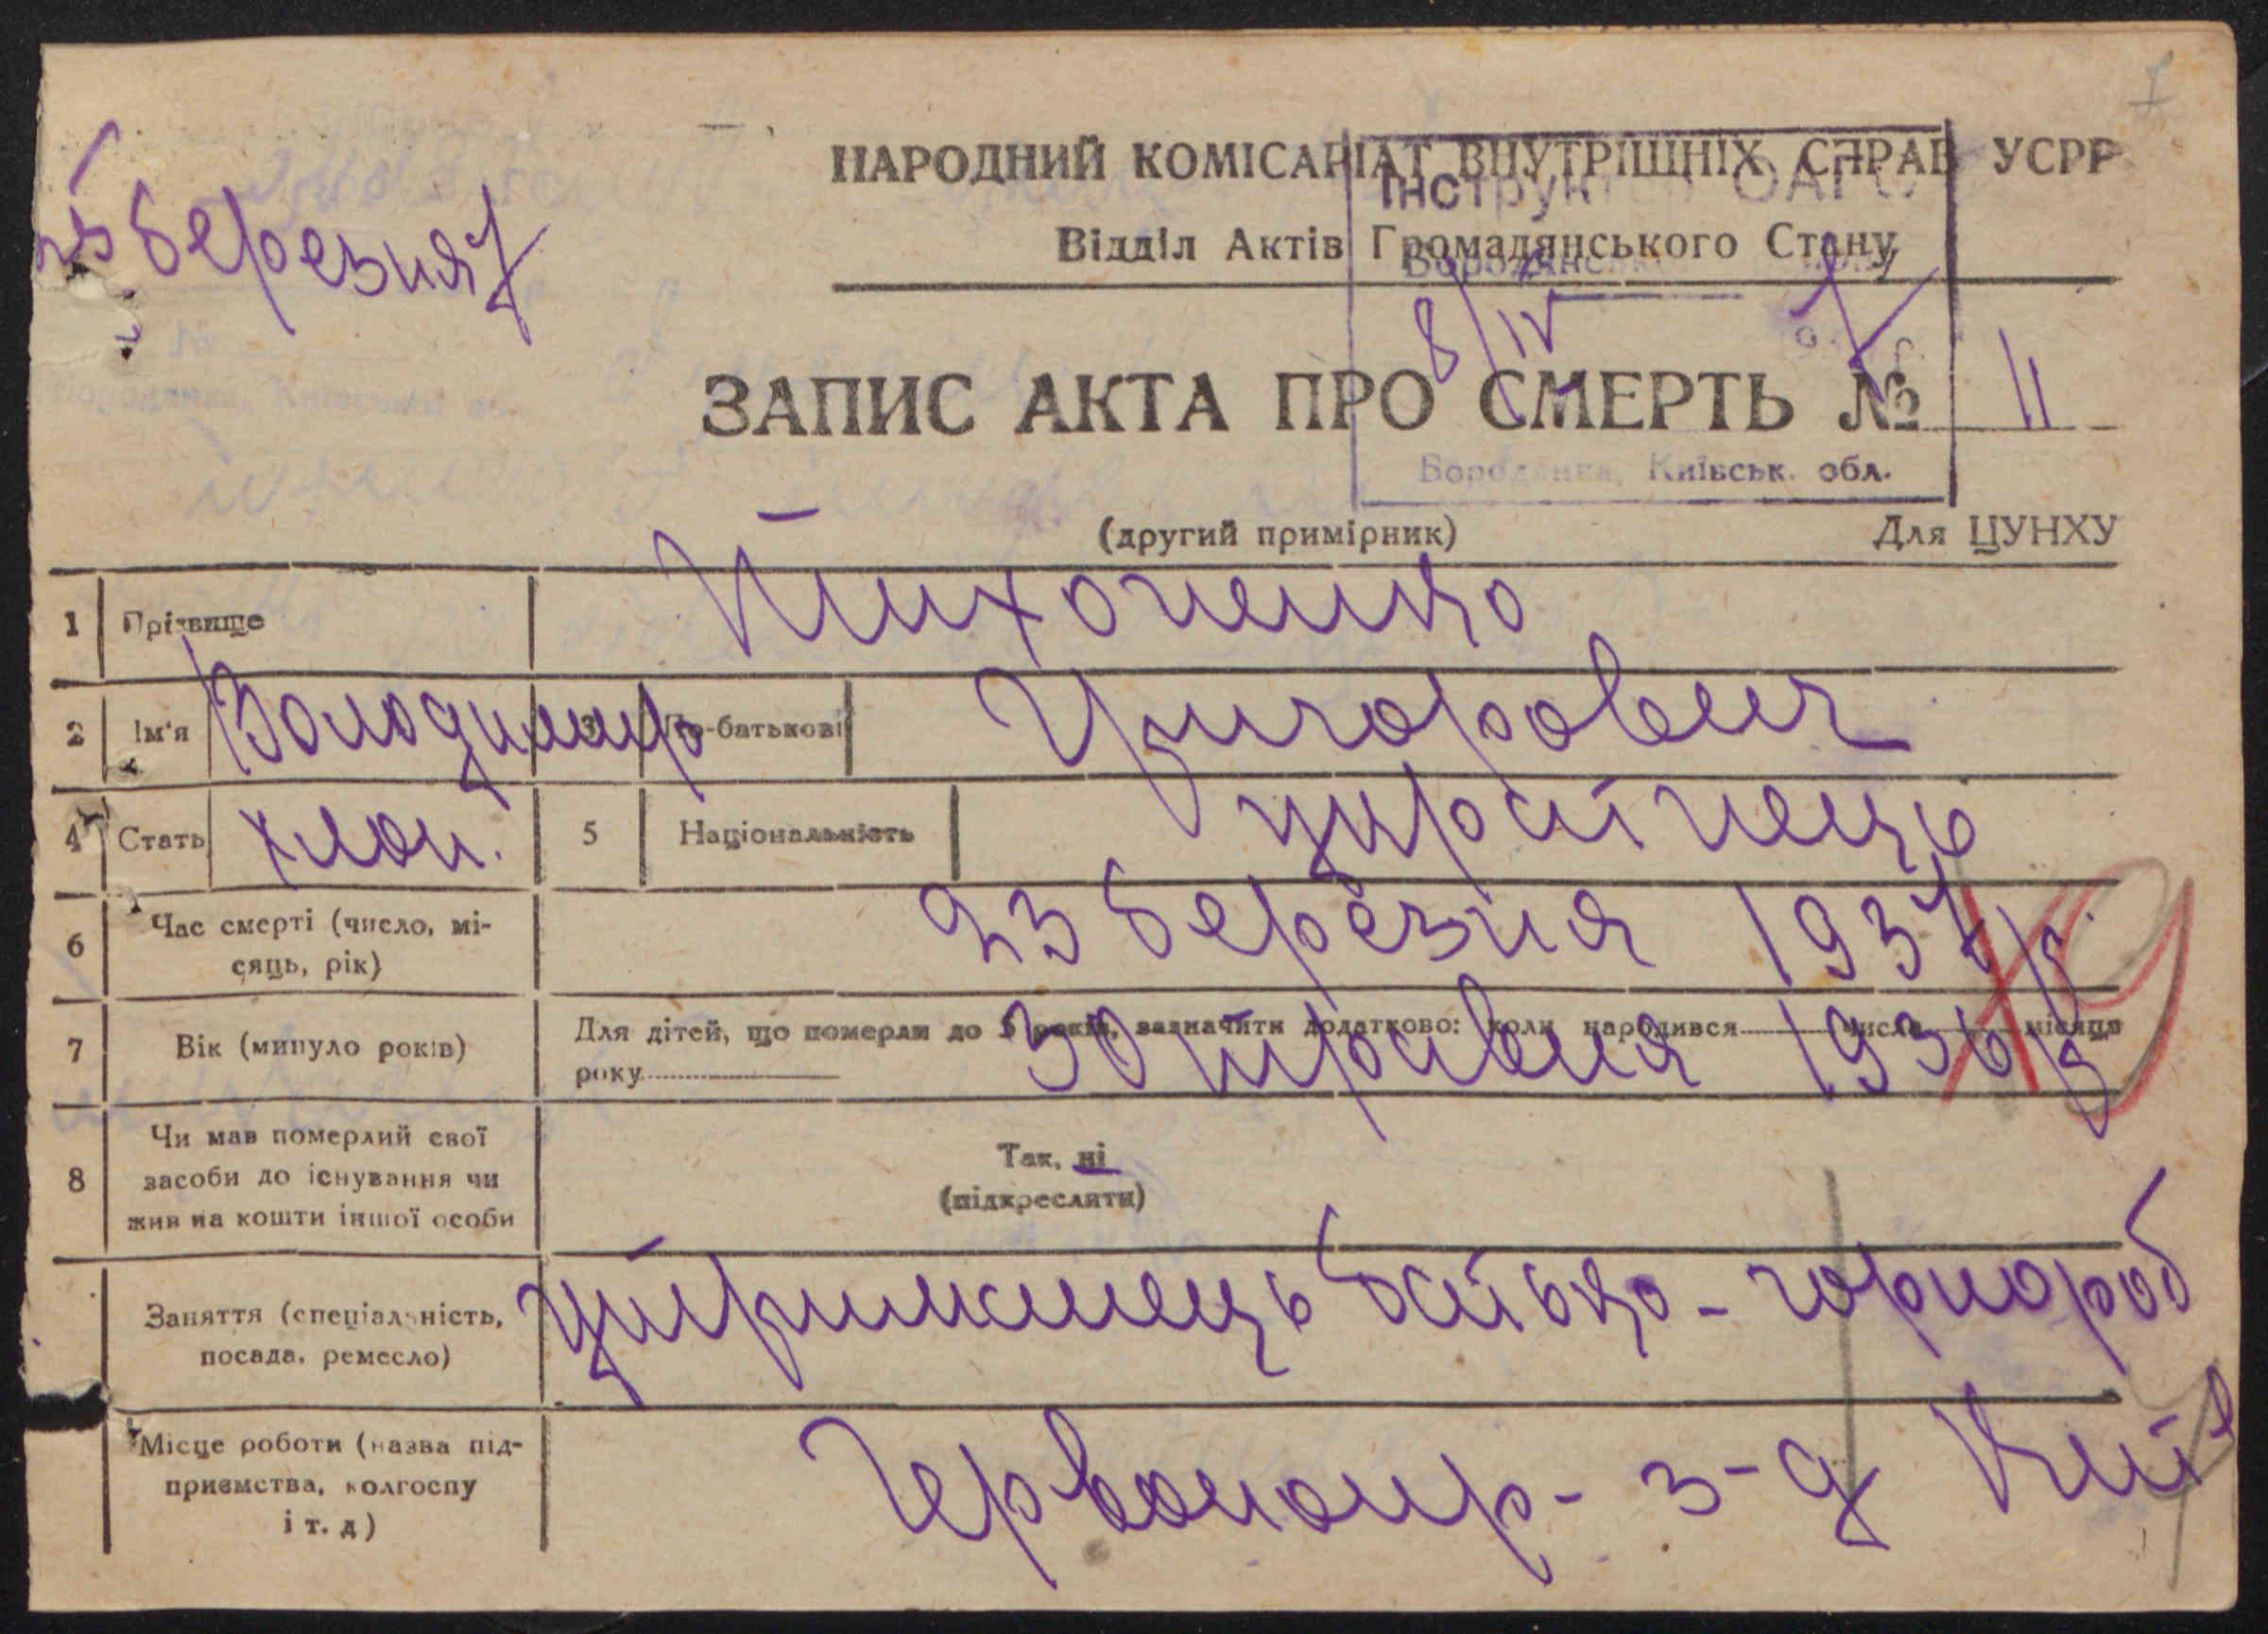 7
НАРОДНИЙ КОМІСАРІАТ ВНУТРІШНІХ СПРАВ УСРР
Інструктор ОАГС
25 березня 7
Відділ Актів Громадянського Стану
8/IV 7
ЗАПИС АКТА ПРО СМЕРТЬ № 11
Бородянка, Київськ. обл.
(другий примірник) Для ЦУНХУ
1 Прізвище Тихоненко
2 Ім'я Володимир 3 По-батькові Григорович
4 Стать хлоп. 5 Національність українець
6 Час смерті (число, місяць, рік) 23 березня 1937 р.
7 Вік (минуло років) Для дітей, що померли до 5 років, зазначити додатково: коли народився числа місяця
року 30 травня 1936 р
8 Чи мав померлий свої засоби до існування чи жив на кошти іншої особи Так, ні
(підкреслити)
Заняття (спеціальність, посада, ремесло) утриманець батько - чорнороб
Місце роботи (назва підприємства, колгоспу і т. д) Червонопр - з-д Київ